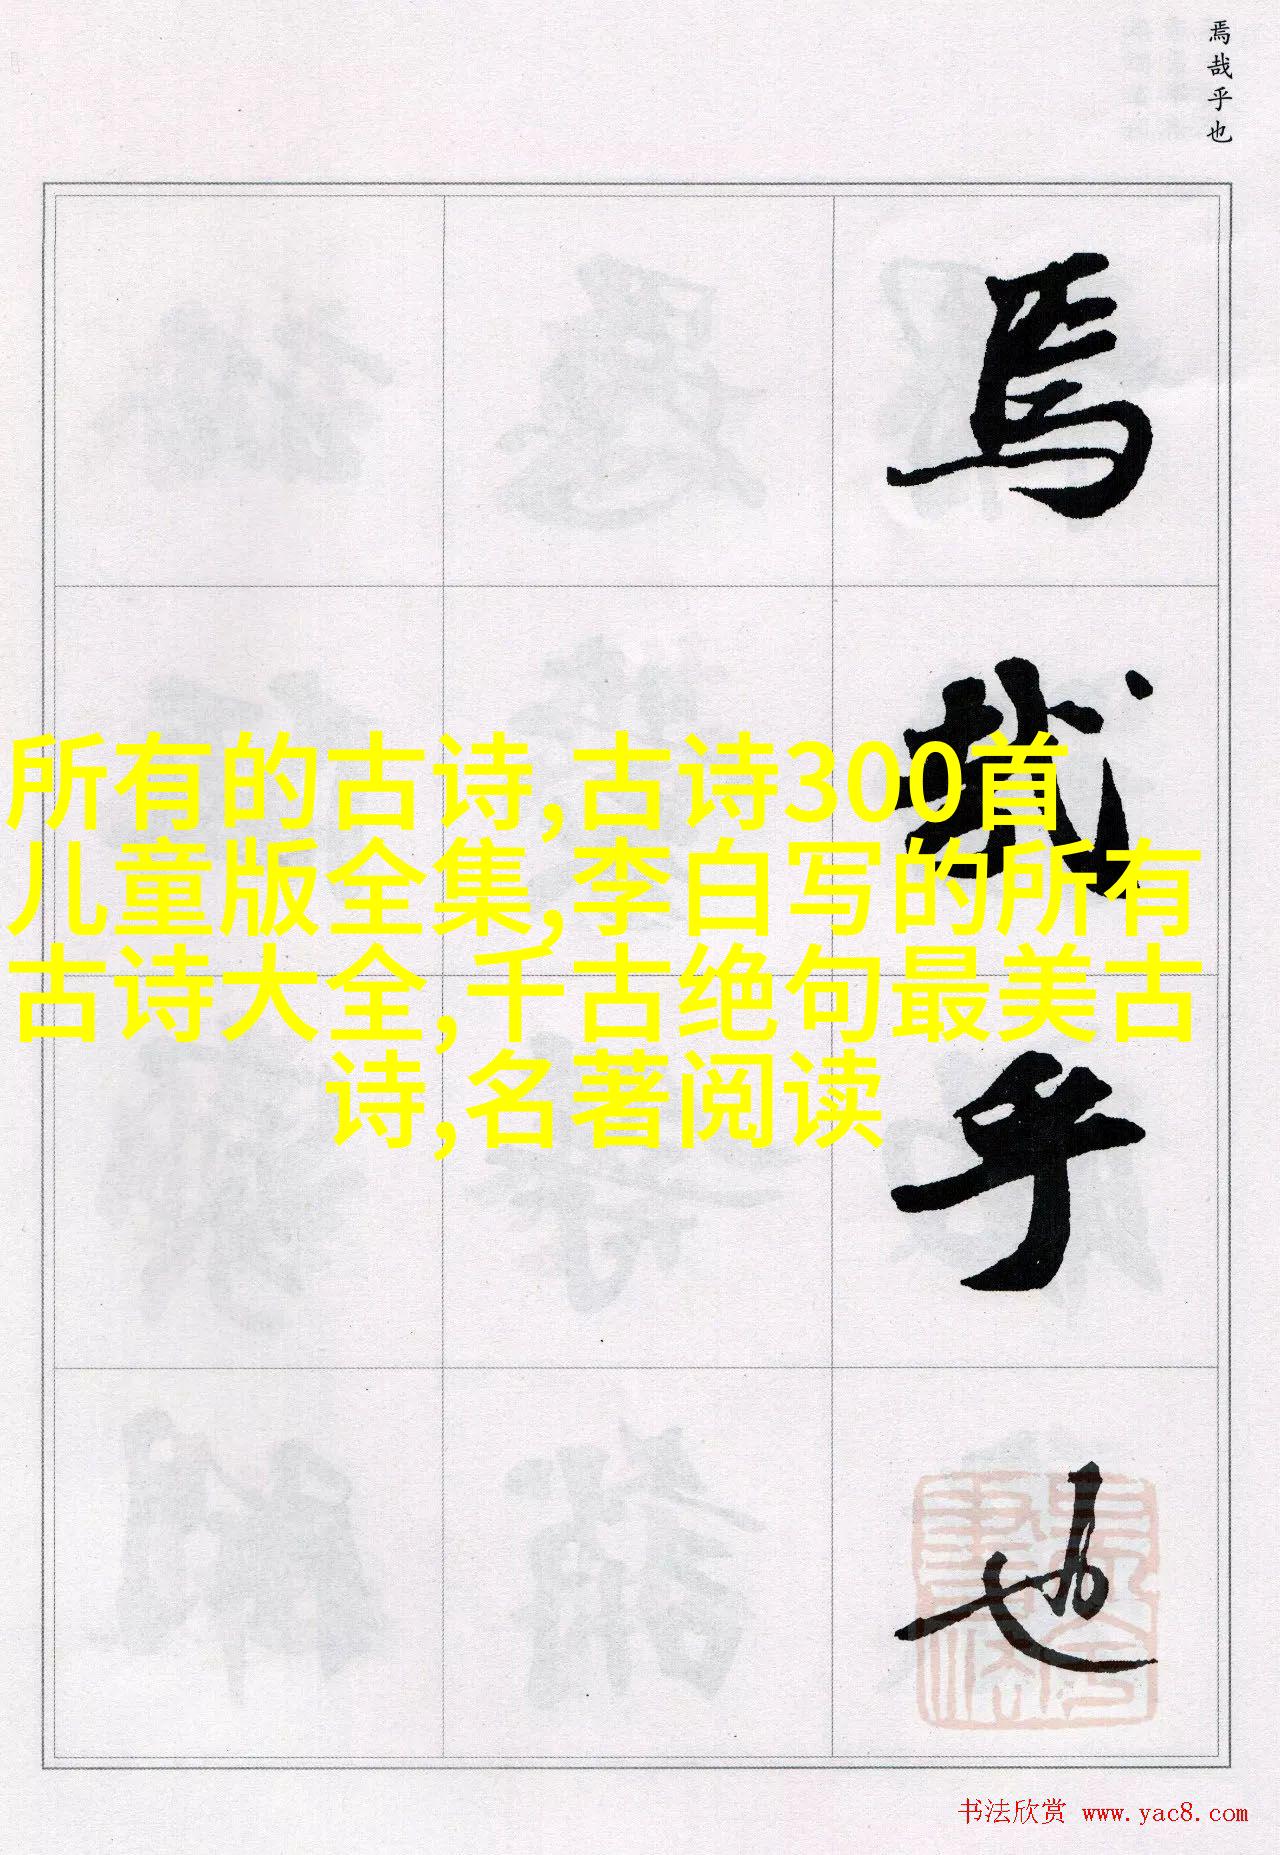 焉哉乎也
焉
哉
乎
也
所有的古诗,古诗300首
儿童版全集,李白写的所有
古诗大全,千古绝句最美古
诗,名著阅读
书法欣赏 www.yac8.com